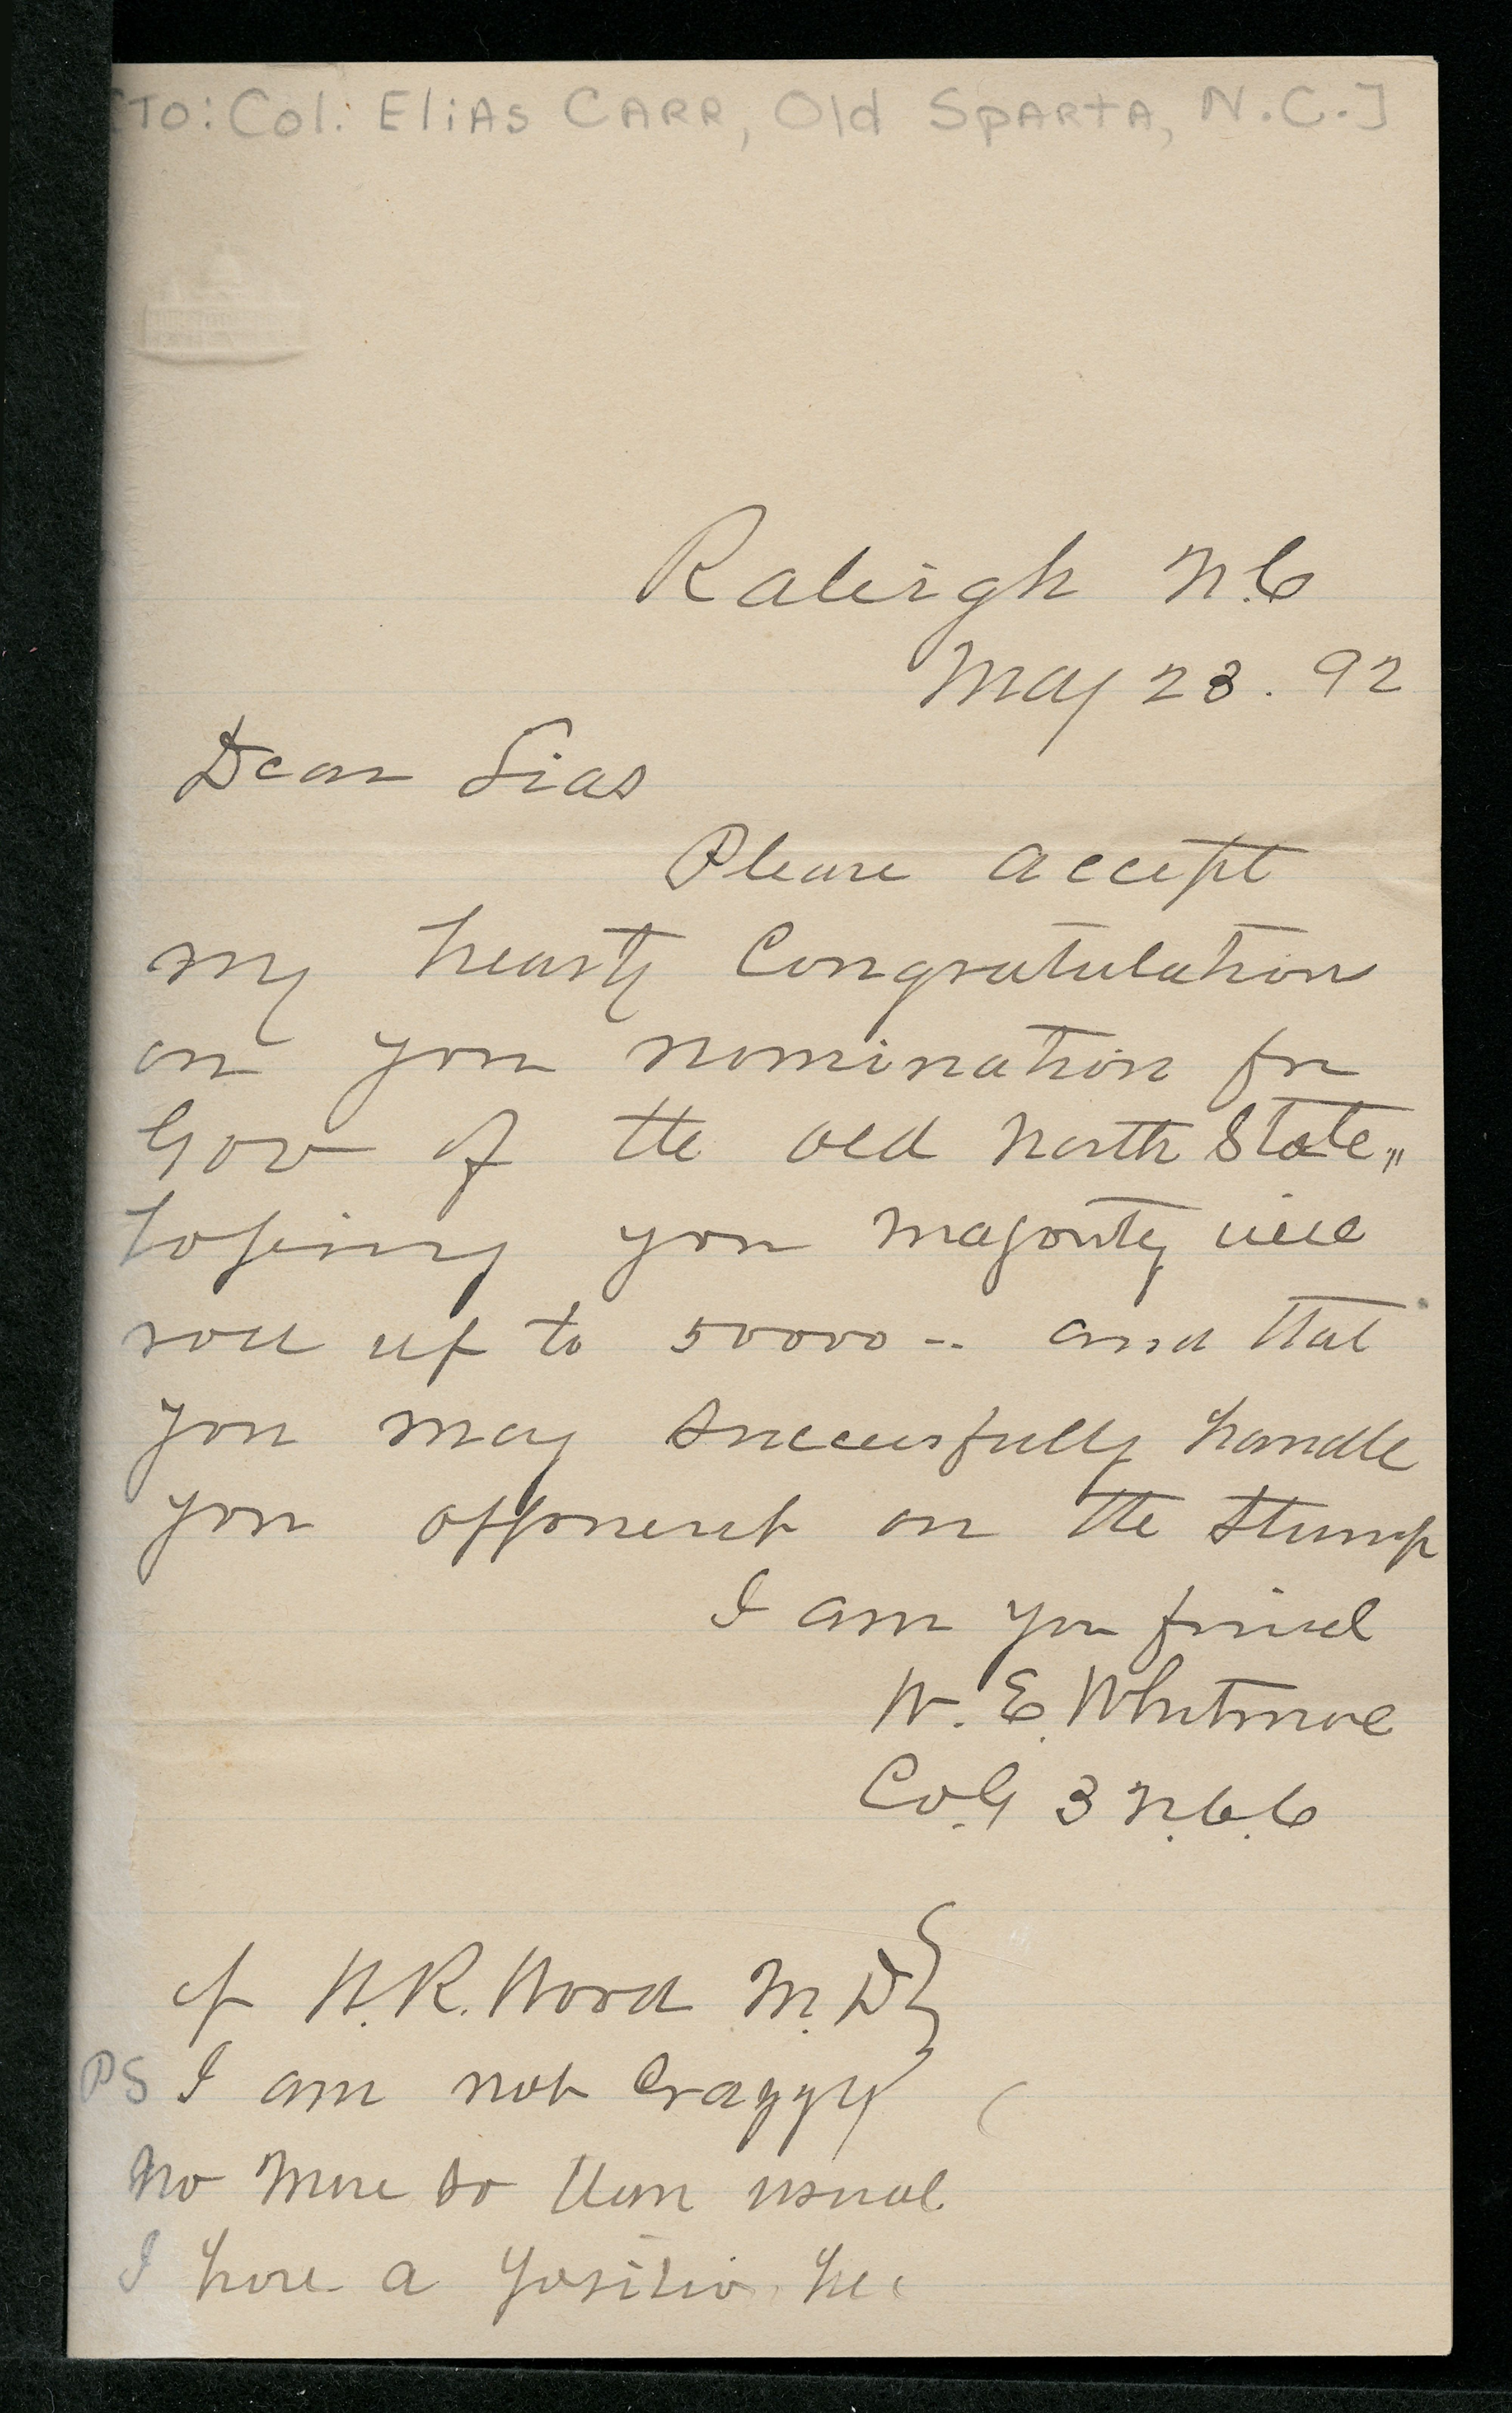 [To: Col. Elias Carr, Old Sparta, N.C.]
Raleigh N.C
May 23. 92
Dear Lias
Please accept
my hearty Congratulations
on your nomination for
Gov of the old North State,,
hopeing your majority will
roll up to 50000 -- and that
you may successfully handle
your opponent on the stump
I am your friend
W. E. Whitmore
Co. G 3 N.C.C
of W. R. Wood M. D
PS I am not Craggy
No more so than usual
I have a position here